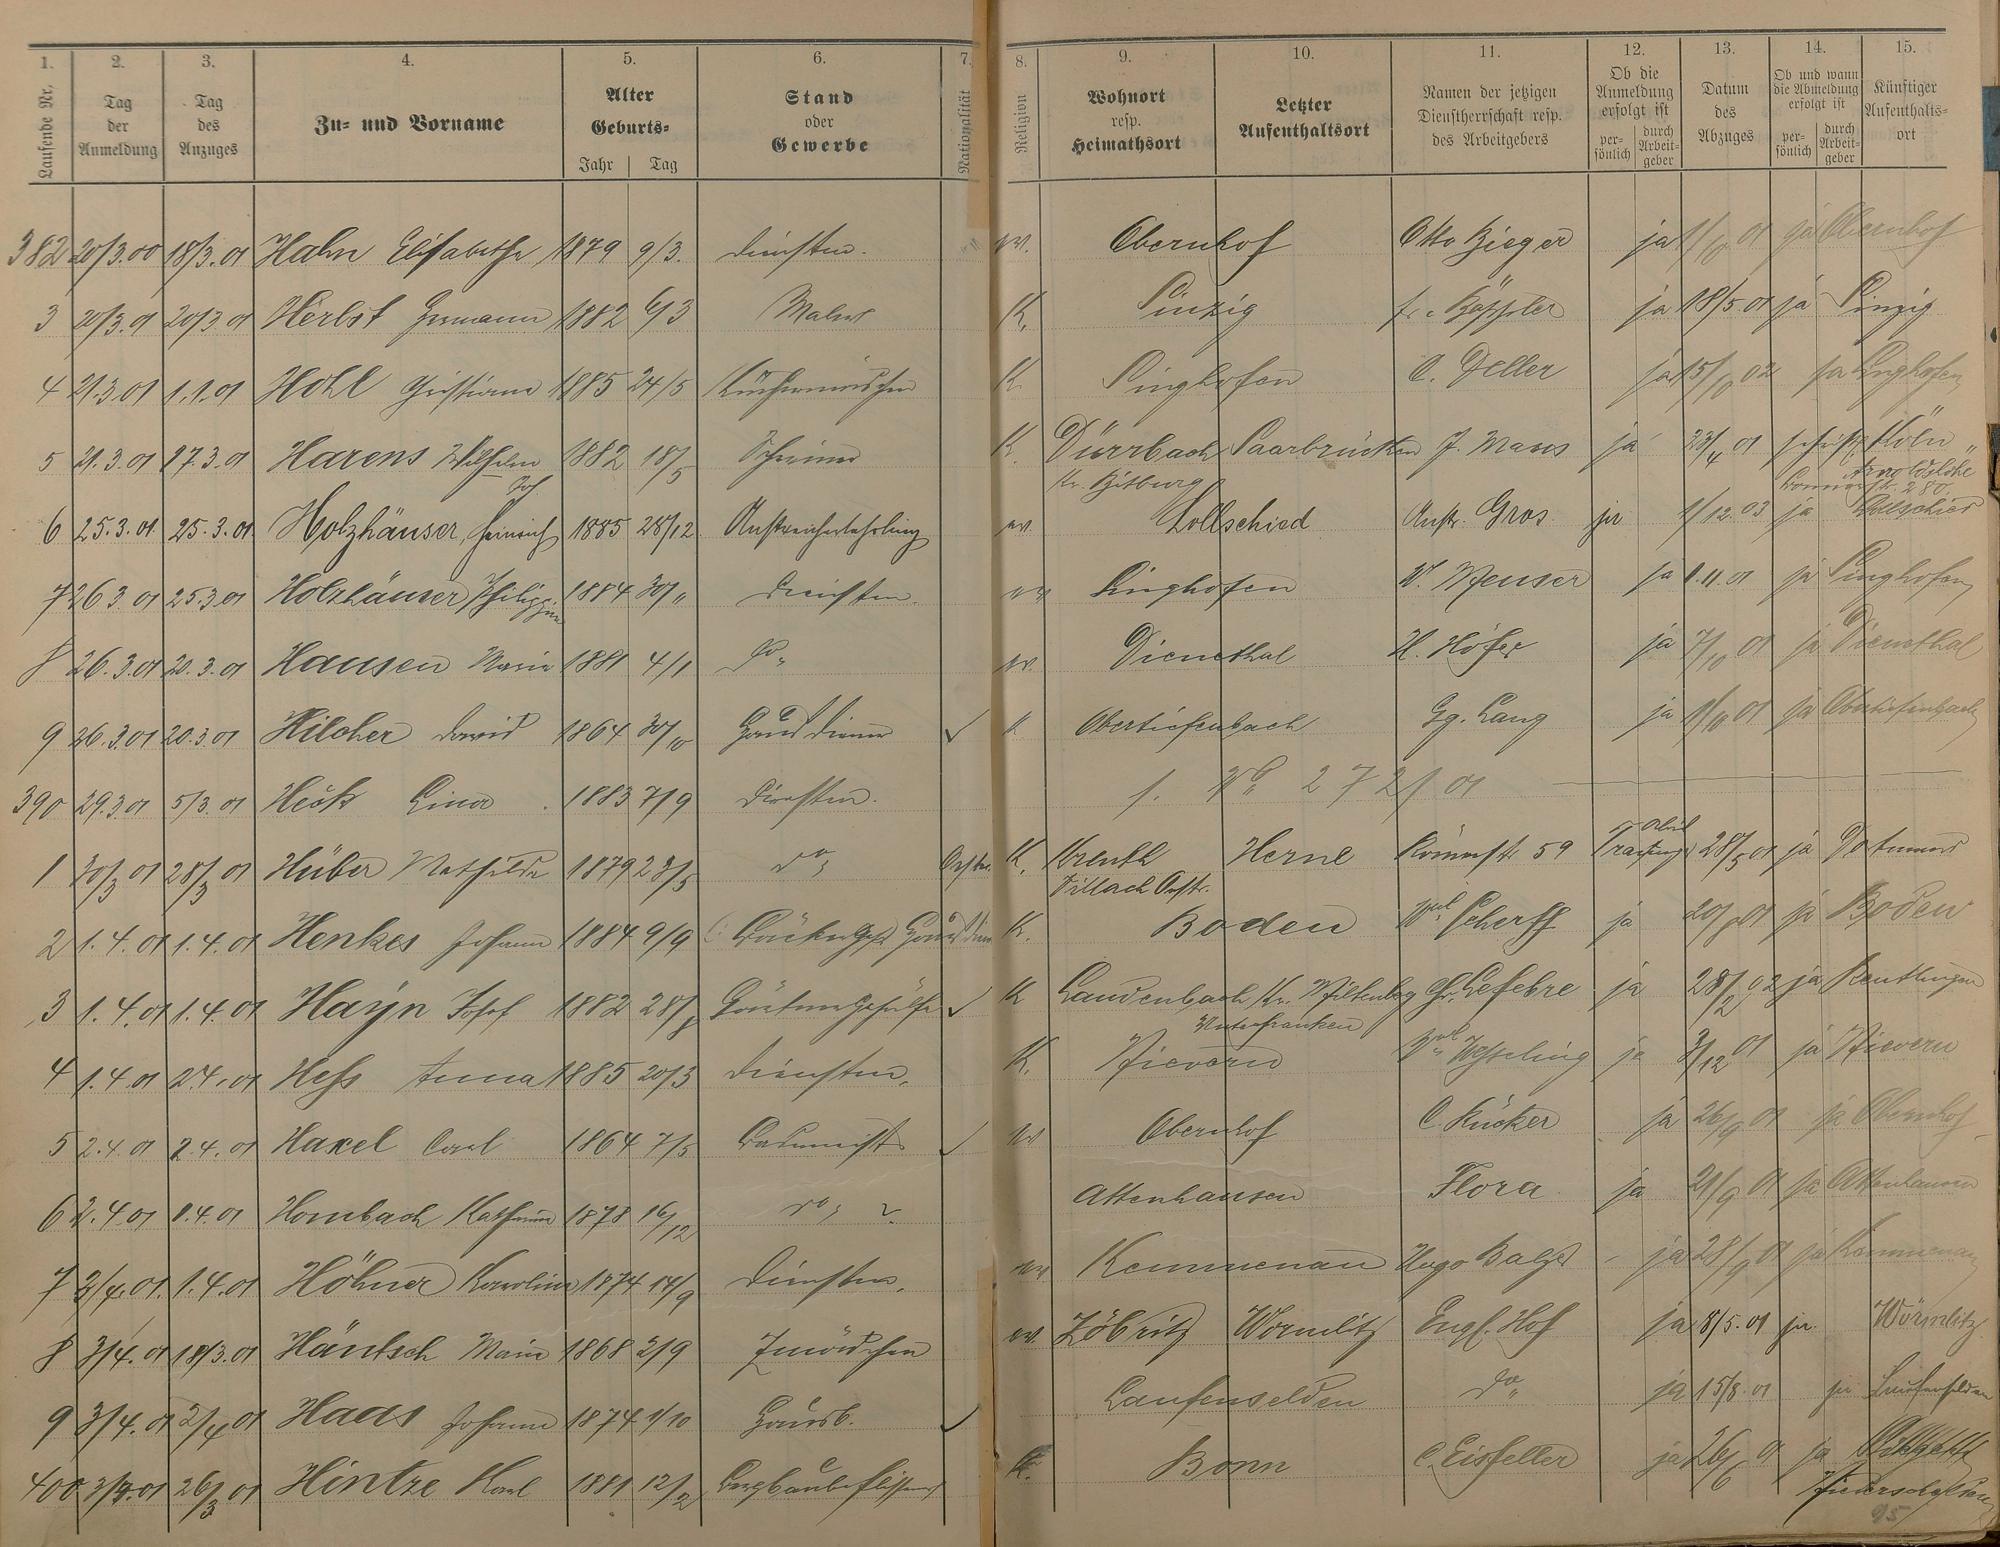 1. 2. 3. 4. 5. 6. 7. 8. 9. 10. 11. 12. 13. 14. 15.
Laufende Nr. Tag der Anmeldung Tag des Anzuges Zu- und Vorname Alter Geburts- Jahr Tag Stand oder Gewerbe Nationalität Religion Wohnort resp. Heimathsort Letzter Aufenthaltsort Namen der jetzigen Dienstherrschaft resp. des Arbeitgebers Ob die Anmeldung erfolgt ist per- sönlich durch Arbeit- geber Datum des Abzuges Ob und wann die Abmeldung erfolgt ist per- sönlich durch Arbeit- geber Künftiger Aufenthalts- ort
382 20/3.00 18/3.01 Hahn Elisabethe 1879 9/3. Diensten. ev. Obernhof Otto Bieger ja 1/10 01 ja Obernhof
3 20/3.01 20/3 01 Herbst Hermann 1882 6/3 Maler K. Sinzig ja 18/5.01 ja Sinzig
4 21.3.01 1.1.01 Hohl Christiane 1885 24/5 K. Singhofen C. Deller ja 02 ja Singhofen
5 21.3.01 17.3.01 Harens Wilhelm 1882 18/5 Schreiner K. Dürrbach Saarbrücken J. Maus ja 23/4 01 Köln
Kr. Bitburg
6 25.3.01 25.3.01 Holzhäuser, Heinrich 1885 28/12 Anstreicherlehrling ev. Lollschied Anstr. Gros ja 1/12.03 ja Lollschied
7 26 3.01 25.3.01 Holzhäuser Philippine 1884 30/11 Diensten. ev Singhofen W. Meuser ja 1.11.01 ja Singhofen
8 26.3.01 20.3.01 Hansen Maria 1881 4/1 do ev. Dienethal H. Höfer ja 7/10 01 ja Dienethal
9 26.3.01 20.3.01 Hilcher David 1864 30/10 Hausdiener Obertiefenbach Gg. Lang ja 1/10 01 ja Obertiefenbach
390 29.3.01 5/3.01 Heck Lina 1883 7/9 Diensten. s. No 272/01
1 30/3 01 28/3 01 Hüber Mathilde 1879 23/5 do Oestr. K. Herne Römerstr 59 28/5 01 ja Dortmund
Villach Oestr.
2 1.4.01 1.4.01 Henkes Johann 1884 9/9 K. Boden Wil Scherff ja 01 ja Boden
3 1.4.01 1.4.01 Hayn Josef 1882 28/8 Gärtnergehülfe K Laudenbach Kr. Miltenberg Lefebre ja 28/2 02 ja Reutlingen
Unterfranken
4 1.4.01 2.4.01 Heß Anna 1885 20/3 Diensten. K. Nievern Wesseling ja 3/12 01 ja Nievern
5 2.4.01 2.4.01 Haxel Carl 1864 7/5 ev Obernhof C. Rücker ja 26/9 01 ja Obernhof
6 2.4.01 1.4.01 Hombach Katharina 1878 16/12 do Attenhausen Flora ja 21/9 01 ja Attenhausen
7 3/4.01. 1.4.01 Höhner Karoline 1874 14/9 Diensten. ev Kemmenau Hugo Balzer ja 28/9 01 ja Kemmenau
8 3/4.01 18/3.01 Häntsch Marie 1868 2/9 Zmädchen ev. Zöbritz Wörmlitz Engl. Hof ja 8/5.01 ja Wörmlitz
9 3/4.01 2/4 01 Haas Johann 1874 1/10 Hausb. Laufenselden do ja 15/8.01 ja Laufenselden
400 3/4.01 26/3 01 Hintze Karl 1881 12/2 Bergbaubeflissener K. Bonn C. Eisfeller ja 26/6 01 ja
95